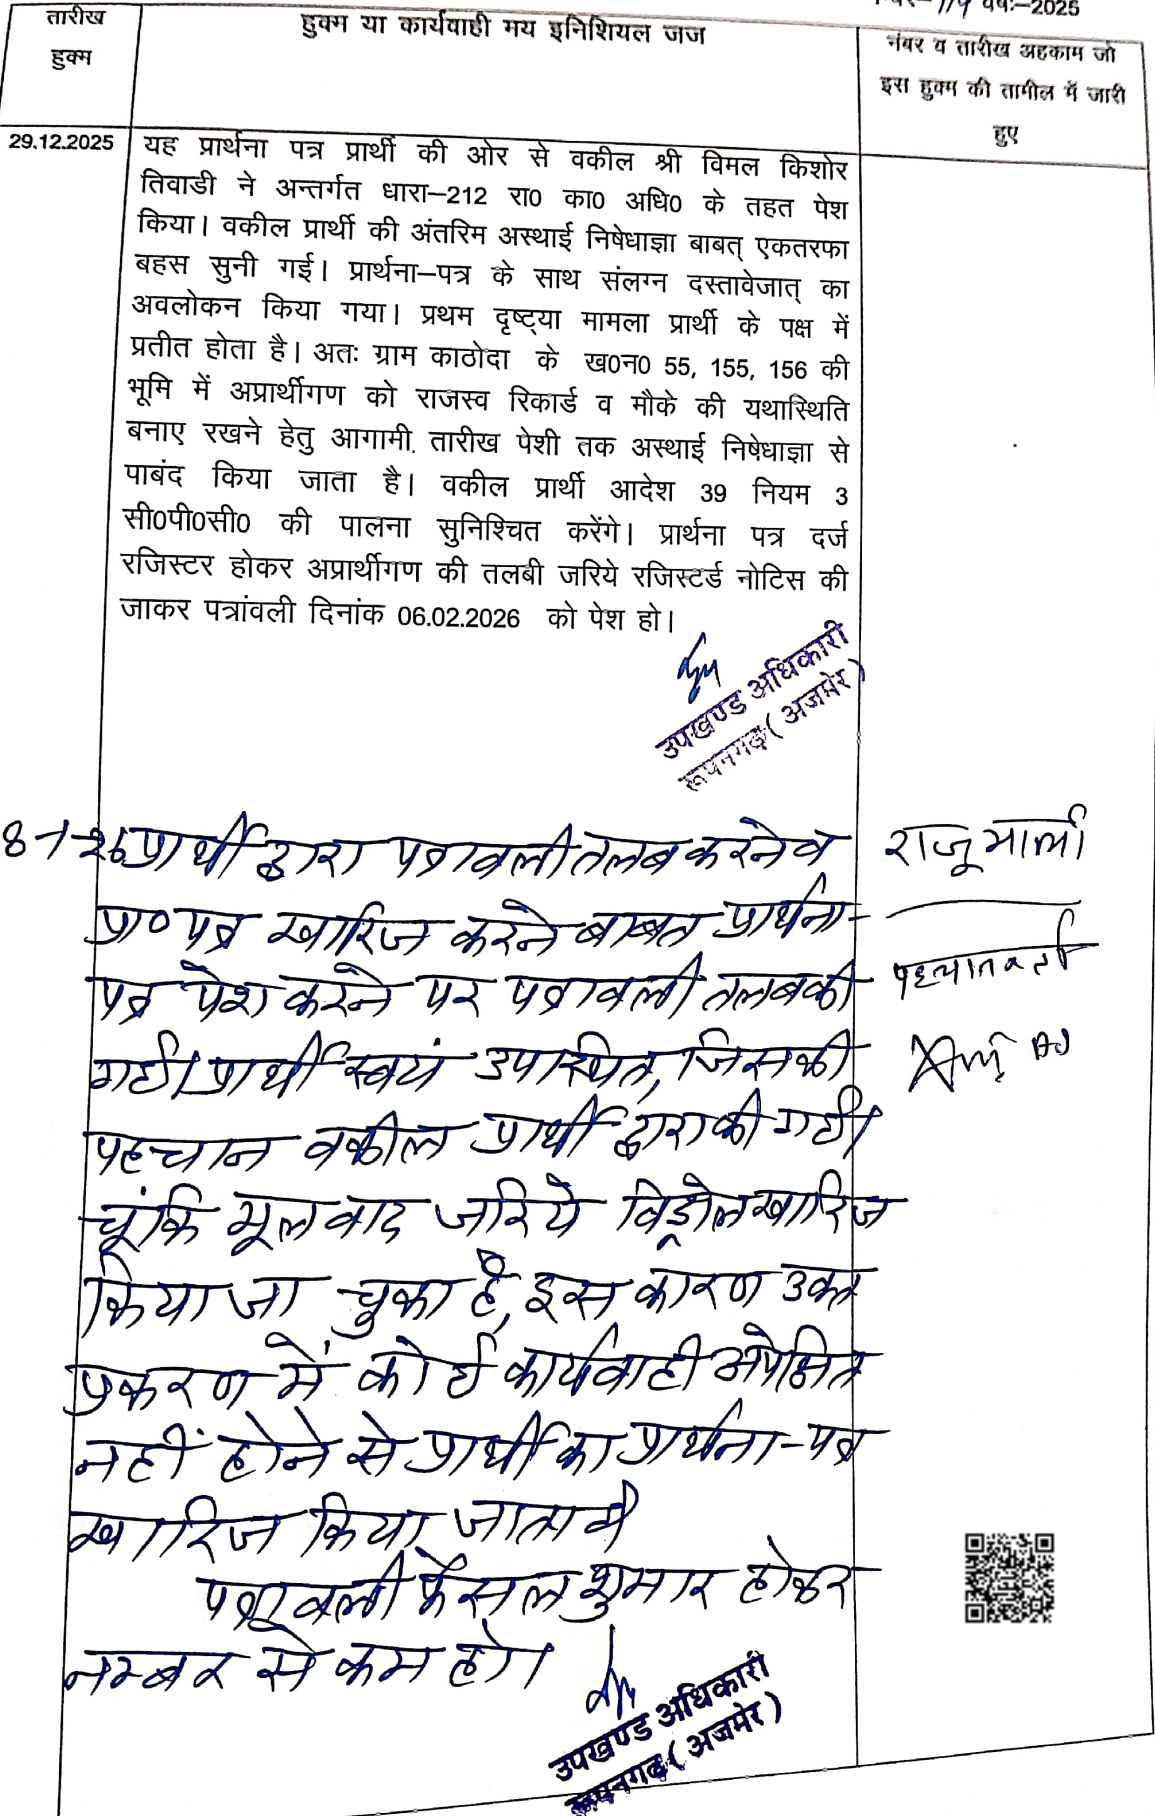 119 वर्षः–2025
तारीख
हुक्म
हुक्म या कार्यवाही मय इनिशियल जज
नंबर व तारीख अहकाम जो
इस हुक्म की तामील में जारी
हुए
29.12.2025
यह प्रार्थना पत्र प्रार्थी की ओर से वकील श्री विमल किशोर
तिवाडी ने अन्तर्गत धारा–212 रा0 का0 अधि0 के तहत पेश
किया। वकील प्रार्थी की अंतरिम अस्थाई निषेधाज्ञा बाबत् एकतरफा
बहस सुनी गई। प्रार्थना–पत्र के साथ संलग्न दस्तावेजात् का
अवलोकन किया गया। प्रथम दृष्ट्या मामला प्रार्थी के पक्ष में
प्रतीत होता है। अतः ग्राम काठोदा के ख0न0 55, 155, 156 की
भूमि में अप्रार्थीगण को राजस्व रिकार्ड व मौके की यथास्थिति
बनाए रखने हेतु आगामी तारीख पेशी तक अस्थाई निषेधाज्ञा से
पाबंद किया जाता है। वकील प्रार्थी आदेश 39 नियम 3
सी0पी0सी0 की पालना सुनिश्चित करेंगे। प्रार्थना पत्र दर्ज
रजिस्टर होकर अप्रार्थीगण की तलबी जरिये रजिस्टर्ड नोटिस की
जाकर पत्रांवली दिनांक 06.02.2026 को पेश हो।
उपखण्ड अधिकारी
रूपनगढ़ (अजमेर)
8-1-26 प्रार्थी द्वारा पत्रावली तलब करने व
प्रा० पत्र खारिज करने बाबत प्रार्थना-
पत्र पेश करने पर पत्रावली तलब की
गई। प्रार्थी स्वयं उपस्थित, जिसकी
पहचान वकील प्रार्थी द्वारा की गई।
चूंकि मूल वाद जरिये विड्रोल खारिज
किया जा चुका है, इस कारण उक्त
प्रकरण में कोई कार्यवाही अपेक्षित
नहीं होने से प्रार्थी का प्रार्थना-पत्र
खारिज किया जाता है
पत्रावली फैसल शुमार होकर
नम्बर से कम हो।
राजू माली
पहचानकर्ता
उपखण्ड अधिकारी
रूपनगढ़ (अजमेर)